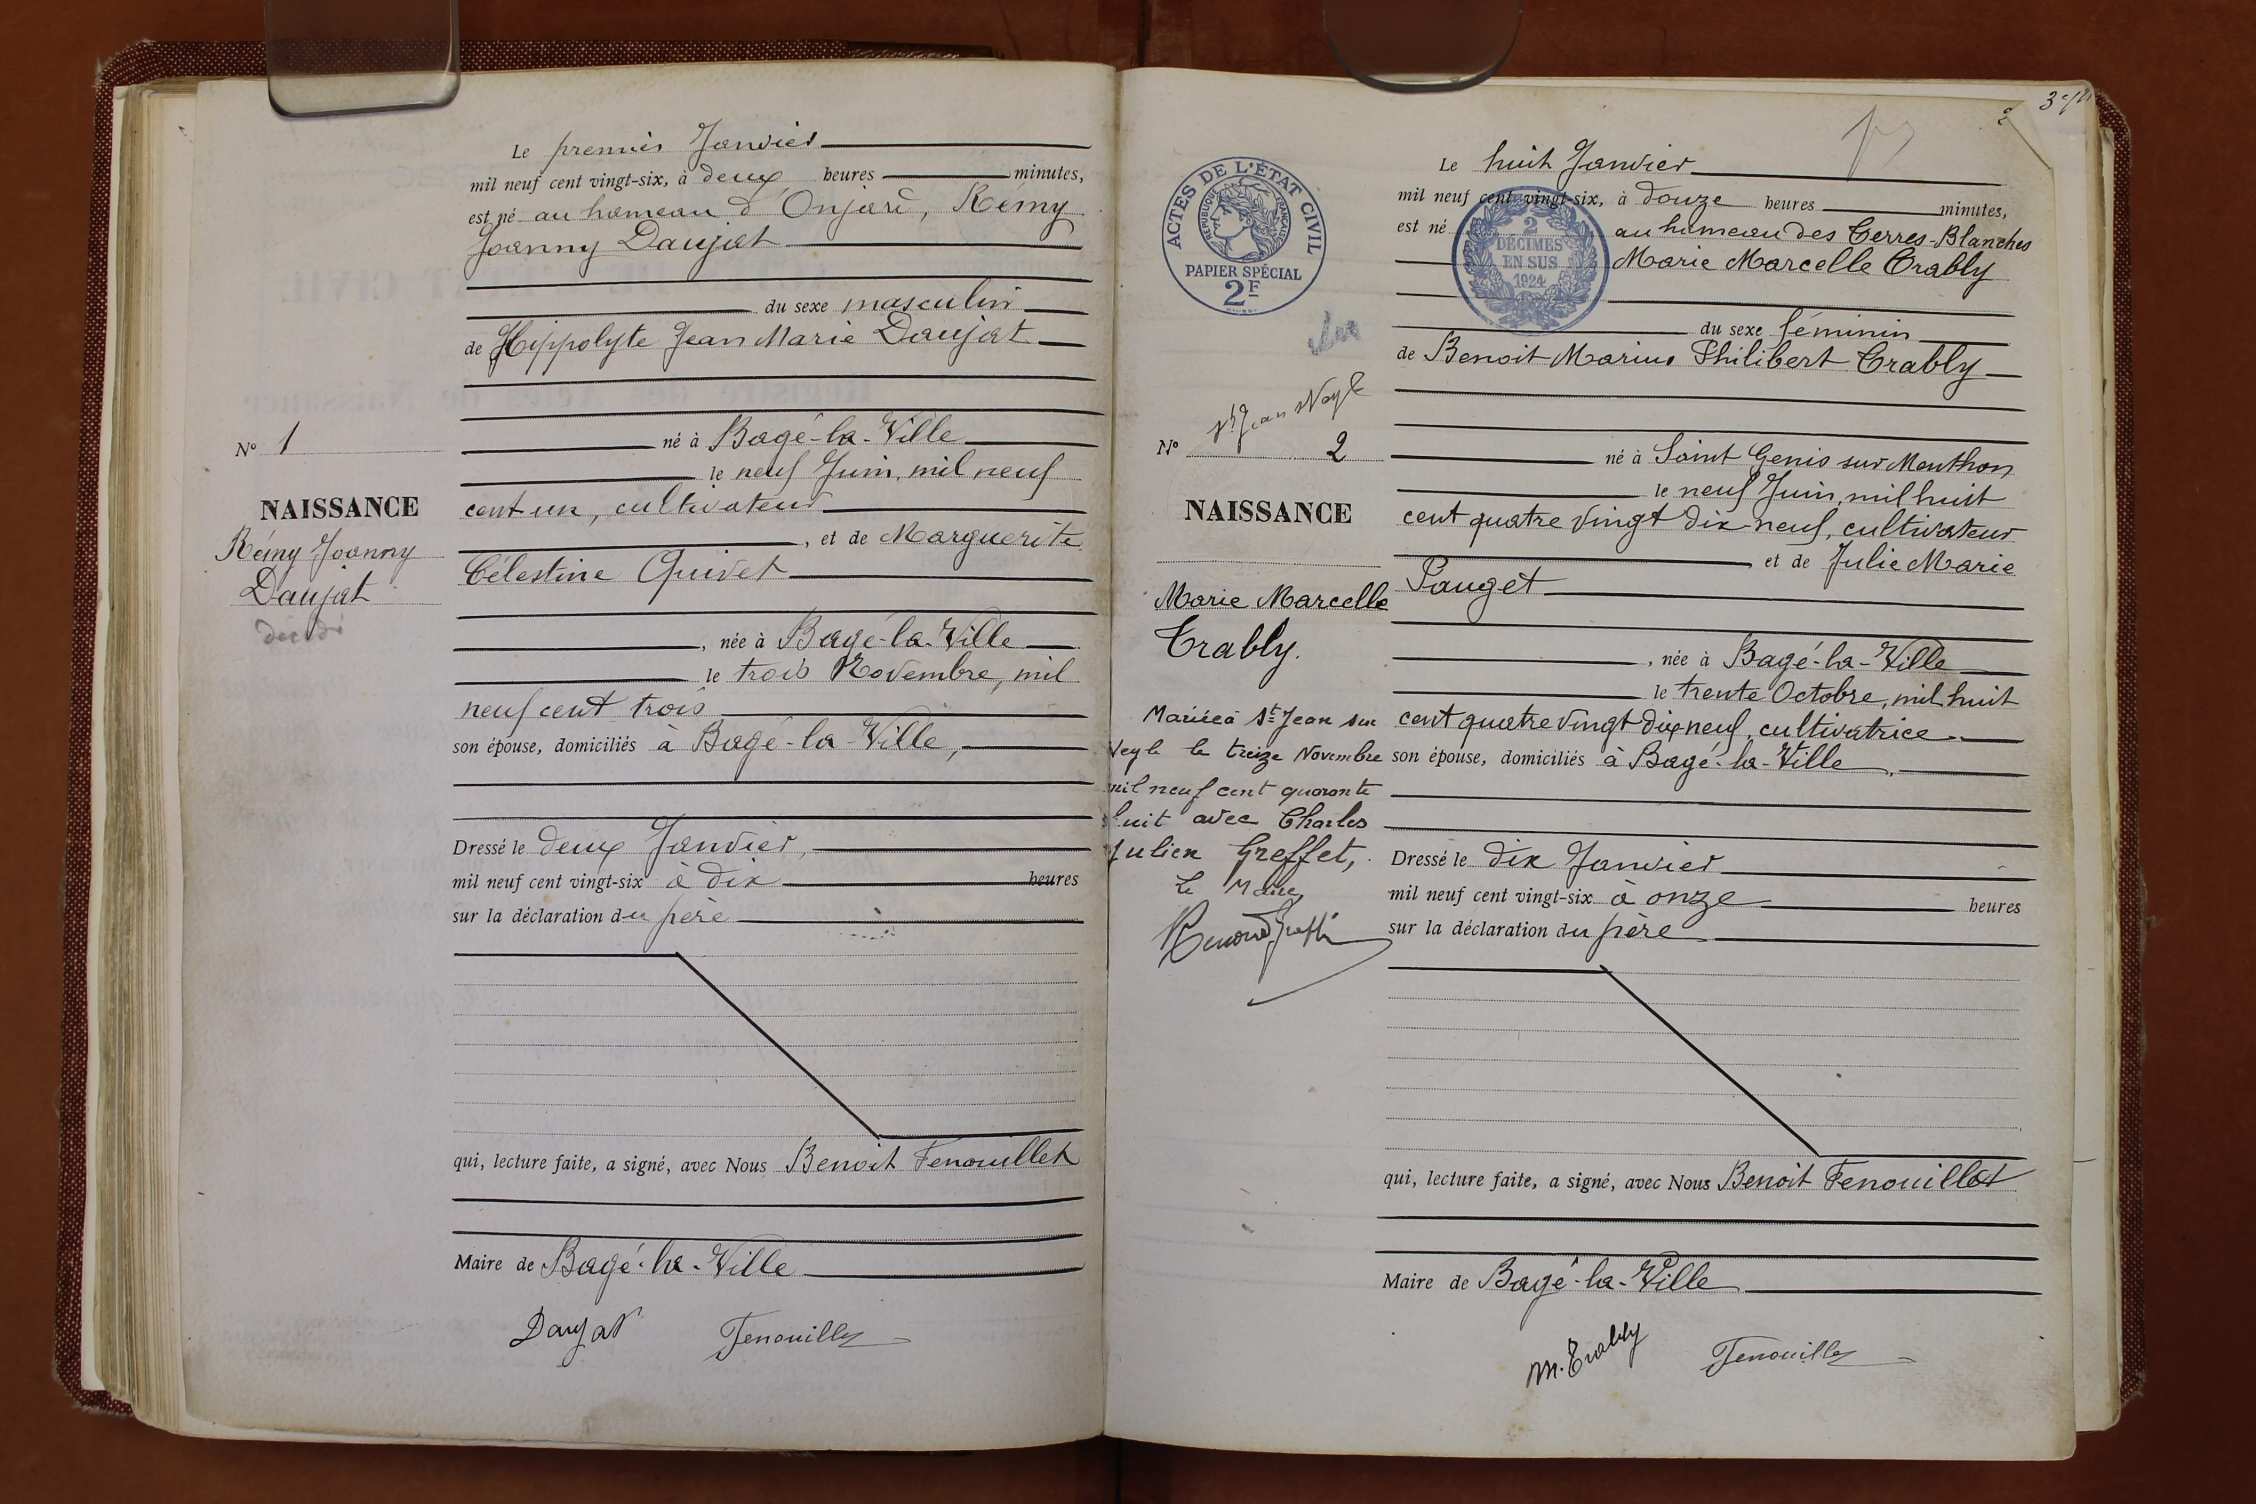 Le premier Janvier
mil neuf cent vingt-six, à deux heures minutes,
est né au hameau d'Onjard, Rémy
Joanny Daujat
du sexe masculin
de Hippolyte Jean Marie Daujat
né à Bagé-la-Ville
le neuf Juin, mil neuf
cent un, cultivateur
, et de Marguerite
Célestine Quivet
, née à Bagé-la-Ville
le trois Novembre, mil
neuf cent trois
son épouse, domiciliés à Bagé-la-Ville,
Dressé le deux Janvier,
mil neuf cent vingt-six à dix heures
sur la déclaration du père
qui, lecture faite, a signé, avec Nous Benoit Fenouillet
Maire de Bagé-la-Ville
Daujat Fenouillet
N° 1
NAISSANCE
Rémy Joanny
Daujat
décédé
ACTES DE L'ÉTAT CIVIL
RÉPUBLIQUE FRANÇAISE
PAPIER SPÉCIAL
2F
St Jean s/Veyle
N° 2
NAISSANCE
Marie Marcelle
Trably.
Mariée à St Jean sur
Veyle le treize Novembre
mil neuf cent quarante
huit avec Charles
Julien Greffet,
Le Maire
2
Le huit Janvier
mil neuf cent vingt-six, à douze heures minutes,
est né au hameau des Terres-Blanches
2
DÉCIMES
EN SUS
1924
Marie Marcelle Trably
du sexe féminin
de Benoit Marius Philibert Trably
né à Saint Genis sur Menthon
le neuf Juin, mil huit
cent quatre vingt dix neuf, cultivateur
et de Julie Marie
Pauget
, née à Bagé-la-Ville
le trente Octobre, mil huit
cent quatre vingt dix-neuf, cultivatrice
son épouse, domiciliés à Bagé-la-Ville,
Dressé le dix Janvier
mil neuf cent vingt-six à onze heures
sur la déclaration du père
qui, lecture faite, a signé, avec Nous Benoit Fenouillet
Maire de Bagé-la-Ville
M. Trably Fenouillet